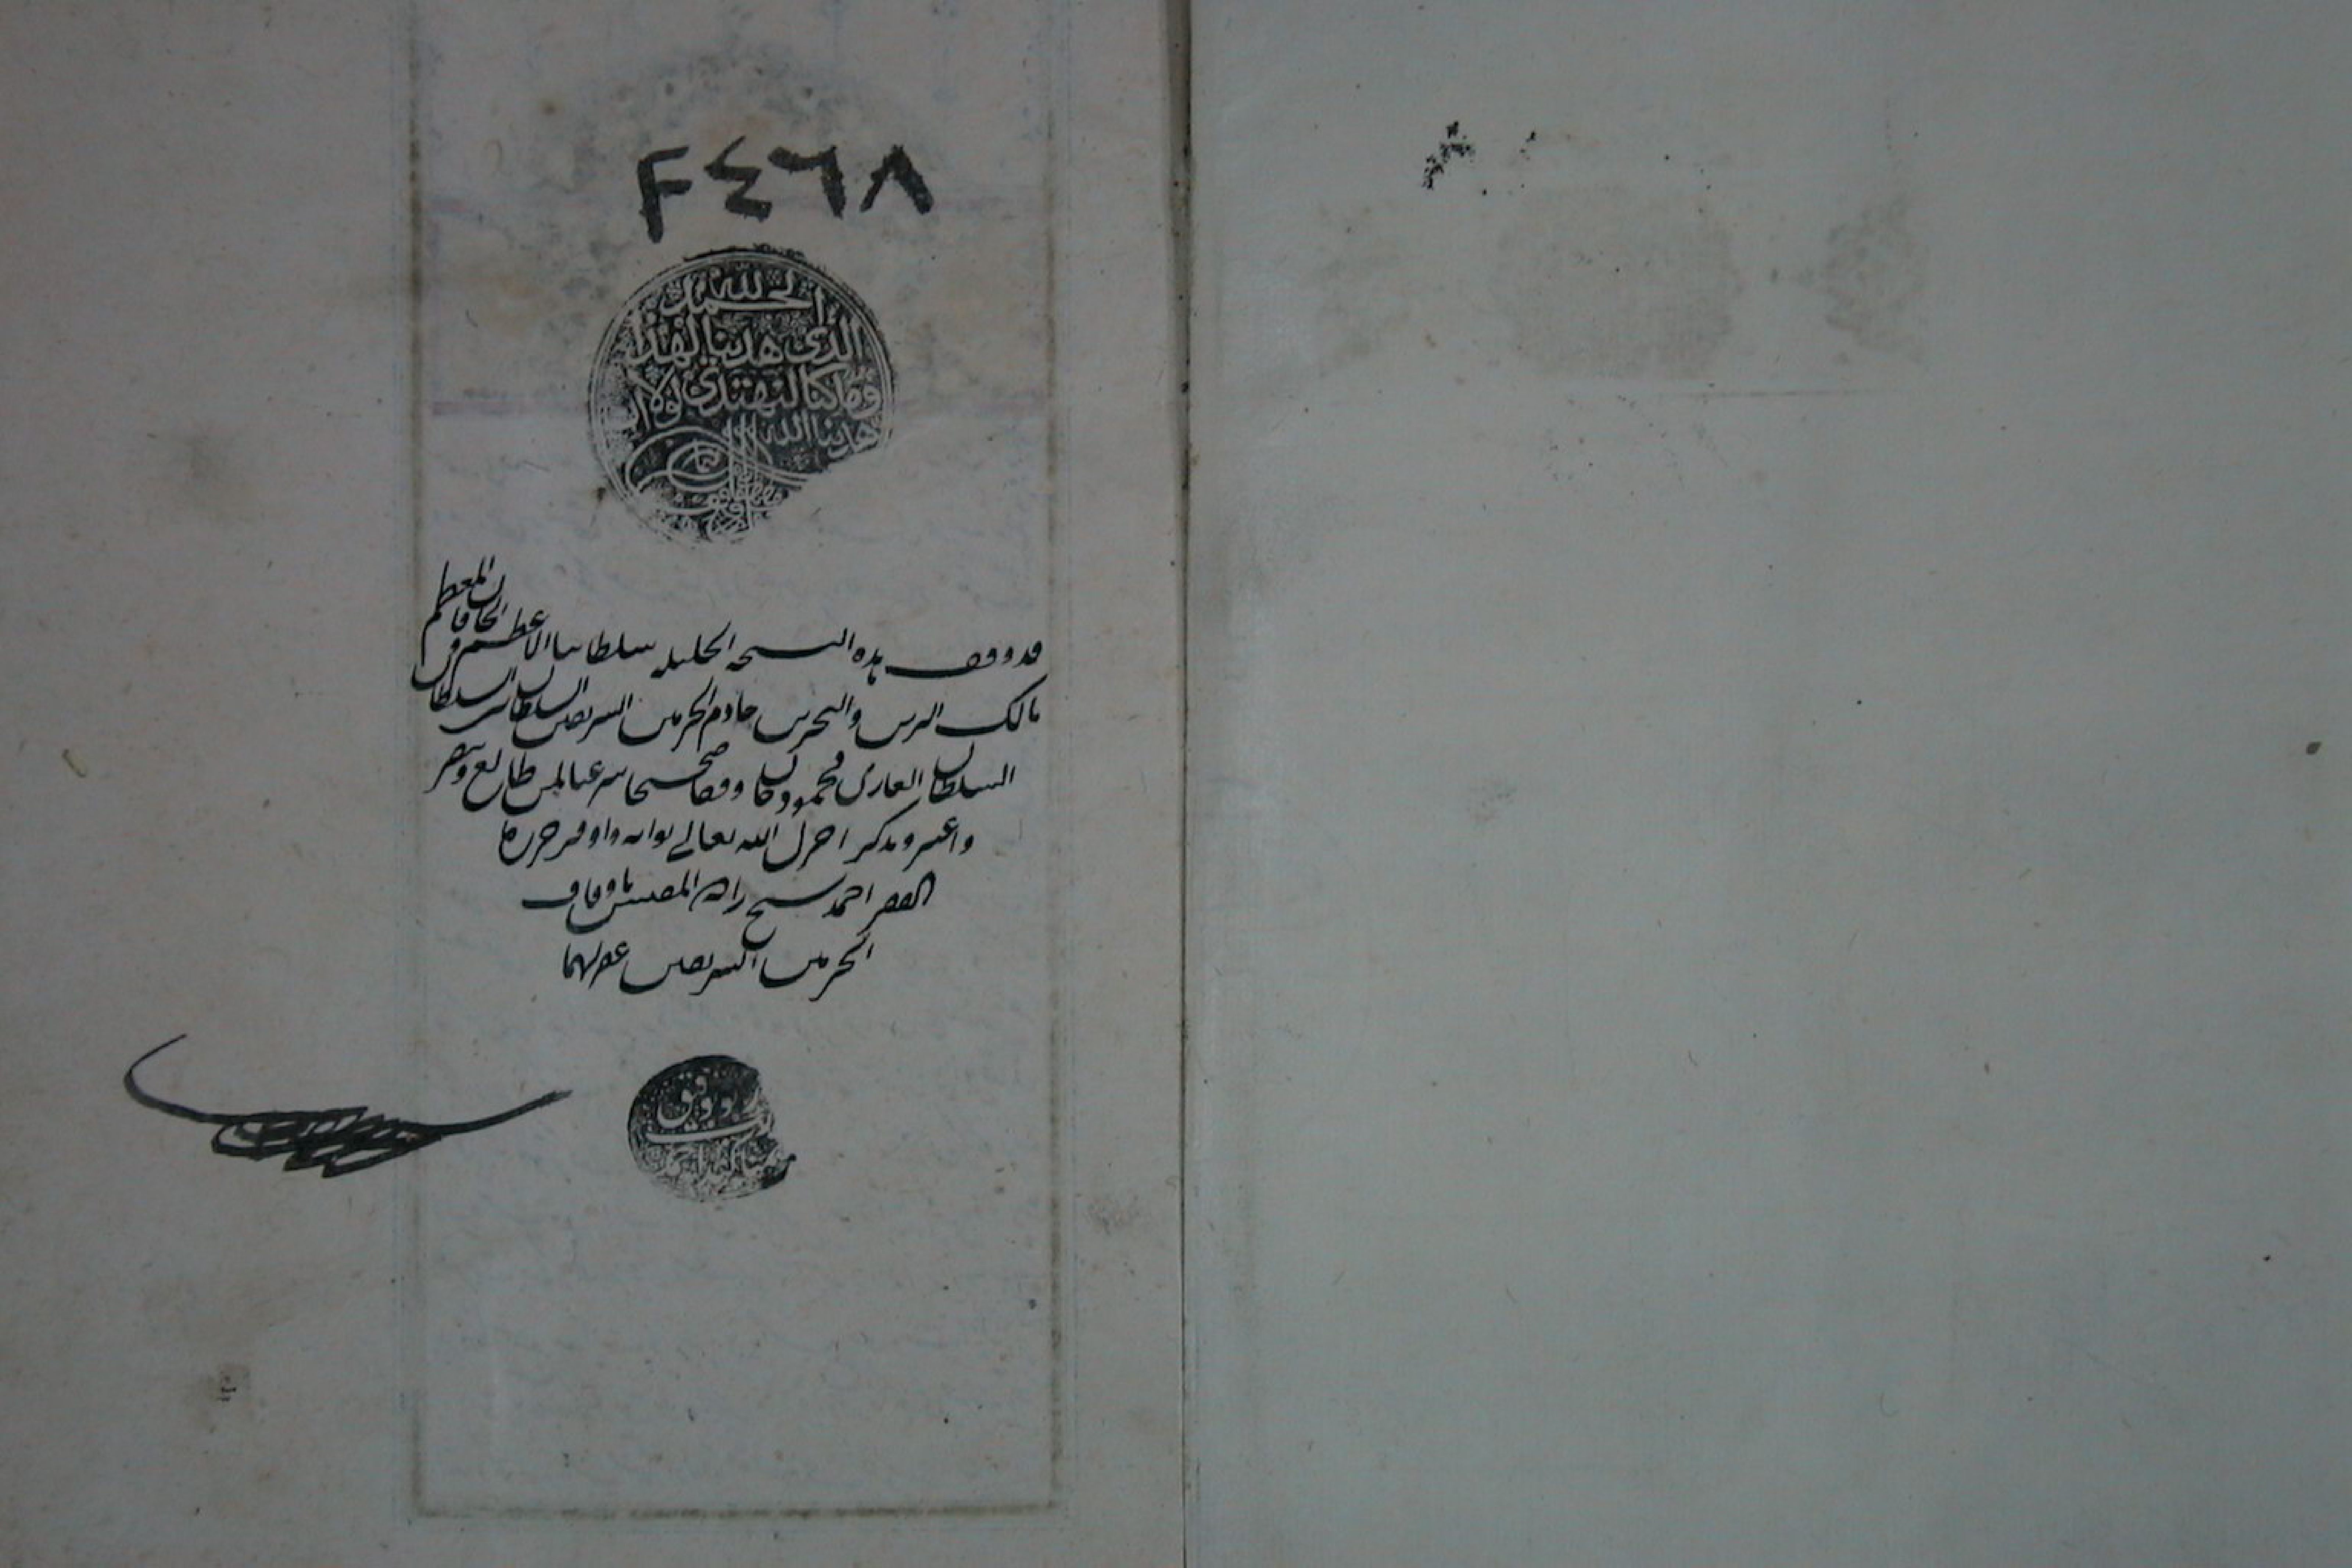 ٢٤٦٨
الحمد لله
الذي هدينا لهذا
وما كنا لنهتدي لولا ان
هدينا الله
قد وقف هذه النسخة الجليلة سلطاننا الأعظم والخاقان المعظم
مالك البرين والبحرين خادم الحرمين الشريفين السلطان بن السلطان
السلطان الغازي محمود خان وقفا صحيحا شرعيا لمن طالع وتبصر
واعتبر وتذكر اجزل الله تعالى ثوابه واوفر
الفقير احمد شيخ زاده المفتش باوقاف
الحرمين الشريفين غفر لهما